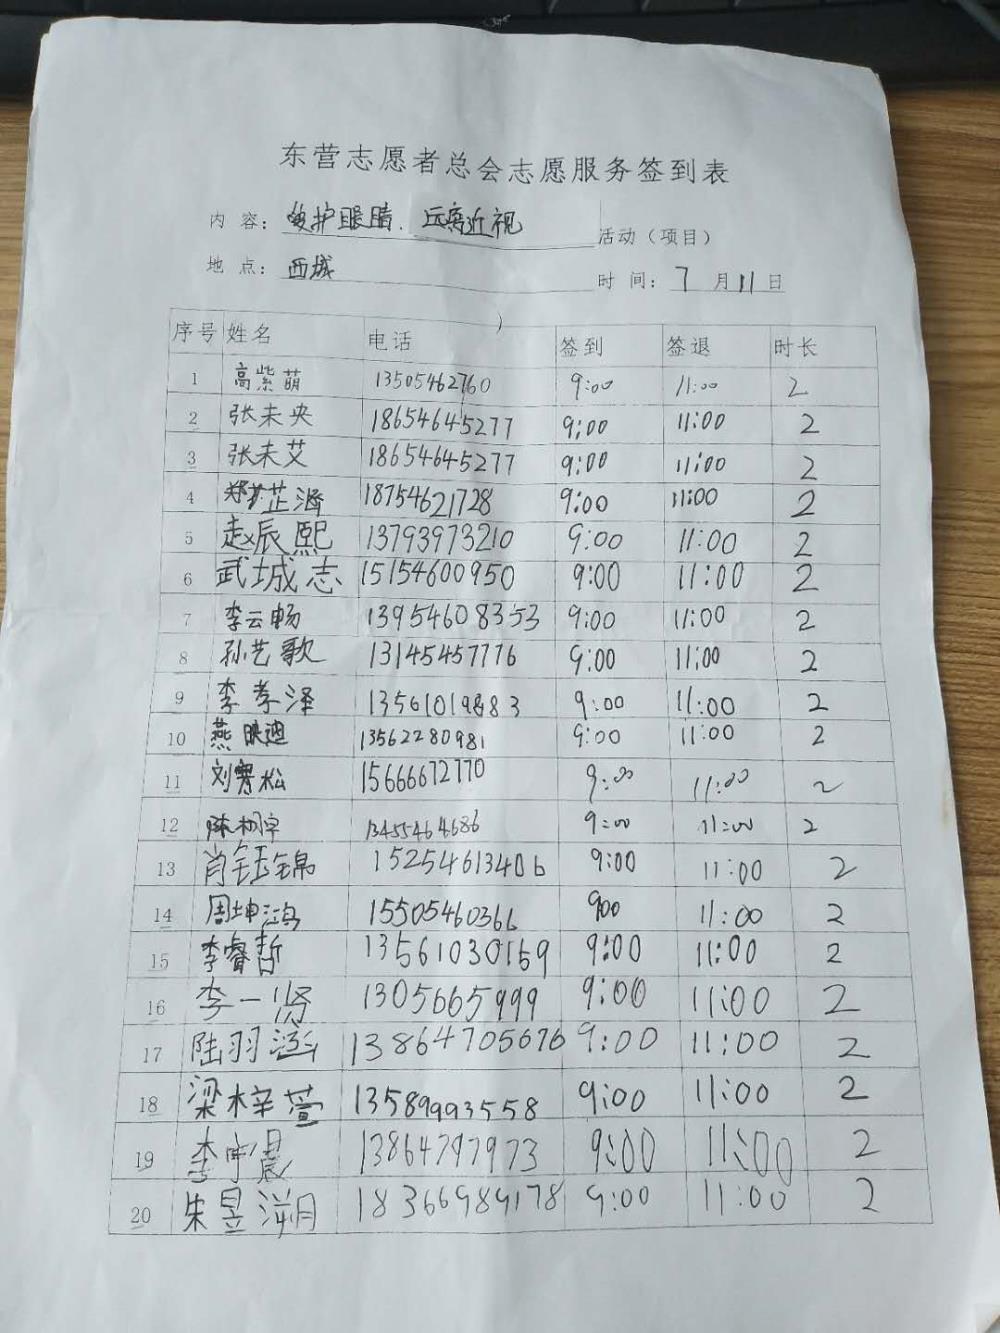 东营志愿者总会志愿服务签到表
内 容: 爱护眼睛. 远离近视 活动（项目）
地 点: 西城 时 间: 7 月 11 日
序号 姓名 电话 签到 签退 时长
1 高紫萌 13505462760 9:00 11:00 2
2 张未央 18654645277 9:00 11:00 2
3 张未艾 18654645277 9:00 11:00 2
4 郑芷涵 18754621728 9:00 11:00 2
5 赵辰熙 13793973210 9:00 11:00 2
6 武城志 15154600950 9:00 11:00 2
7 李云畅 13954608353 9:00 11:00 2
8 孙艺歌 13145457776 9:00 11:00 2
9 李孝泽 13561019883 9:00 11:00 2
10 燕 13562280981 9:00 11:00 2
11 刘寒松 15666672770 9:00 11:00 2
12 陈栩宇 13455464686 9:00 11:00 2
13 肖钰锦 15254613406 9:00 11:00 2
14 周坤鸿 15505460366 900 11:00 2
15 李睿哲 13561030159 9:00 11:00 2
16 李一贤 1305665999 9:00 11:00 2
17 陆羽涵 13864705676 9:00 11:00 2
18 梁梓萱 13589993558 9:00 11:00 2
19 李宇晨 13864797973 9:00 11:00 2
20 朱昱溯 18366989178 9:00 11:00 2